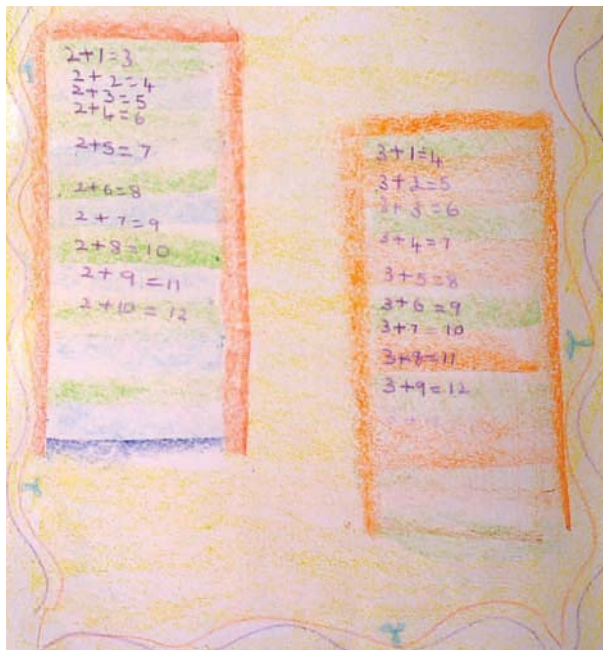 2+1=3
2+2=4
2+3=5
2+4=6
2+5=7
2+6=8
2+7=9
2+8=10
2+9=11
2+10=12
3+1=4
3+2=5
3+3=6
3+4=7
3+5=8
3+6=9
3+7=10
3+8=11
3+9=12